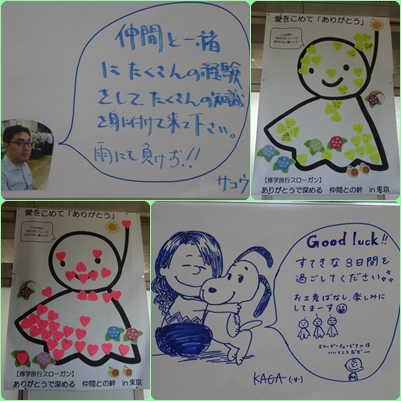 仲間と一緒
にたくさんの経験
をして、たくさんの知識
を身に付けて来て下さい。
雨にも負けず!!
サコウ
愛をこめて「ありがとう」
【修学旅行スローガン】
ありがとうで深める 仲間との絆 in 東京
愛をこめて「ありがとう」
【修学旅行スローガン】
ありがとうで深める 仲間との絆 in 東京
Good luck!!
すてきな3日間を
過ごしてください
お土産ばなし、楽しみに
してまーす
KAGA